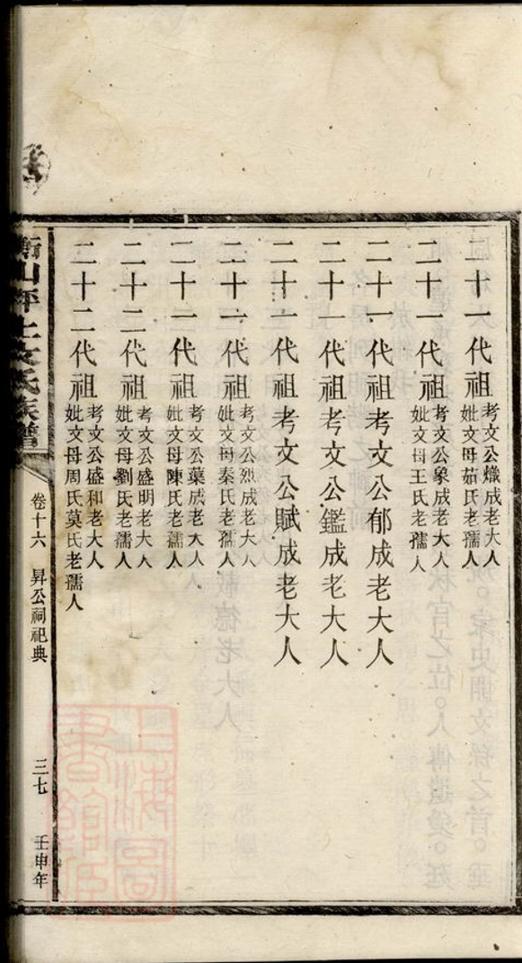 二十一代祖考文公熾成老大人
妣文母茹氏老孺人
二十一代祖考文公象成老大人
妣文母王氏老孺人
二十一代祖考文公郁成老大人
二十一代祖考文公鑑成老大人
二十一代祖考文公賦成老大人
二十一代祖考文公烈成老大人
妣文母秦氏老孺人
二十一代祖考文公葉成老大人
妣文母陳氏老孺人
二十二代祖考文公盛明老大人
妣文母劉氏老孺人
二十二代祖考文公盛和老大人
妣文母周氏莫氏老孺人
衡山坪上文氏族譜
卷十六 昇公祠祀典 三七 壬申年
上海圖書館藏